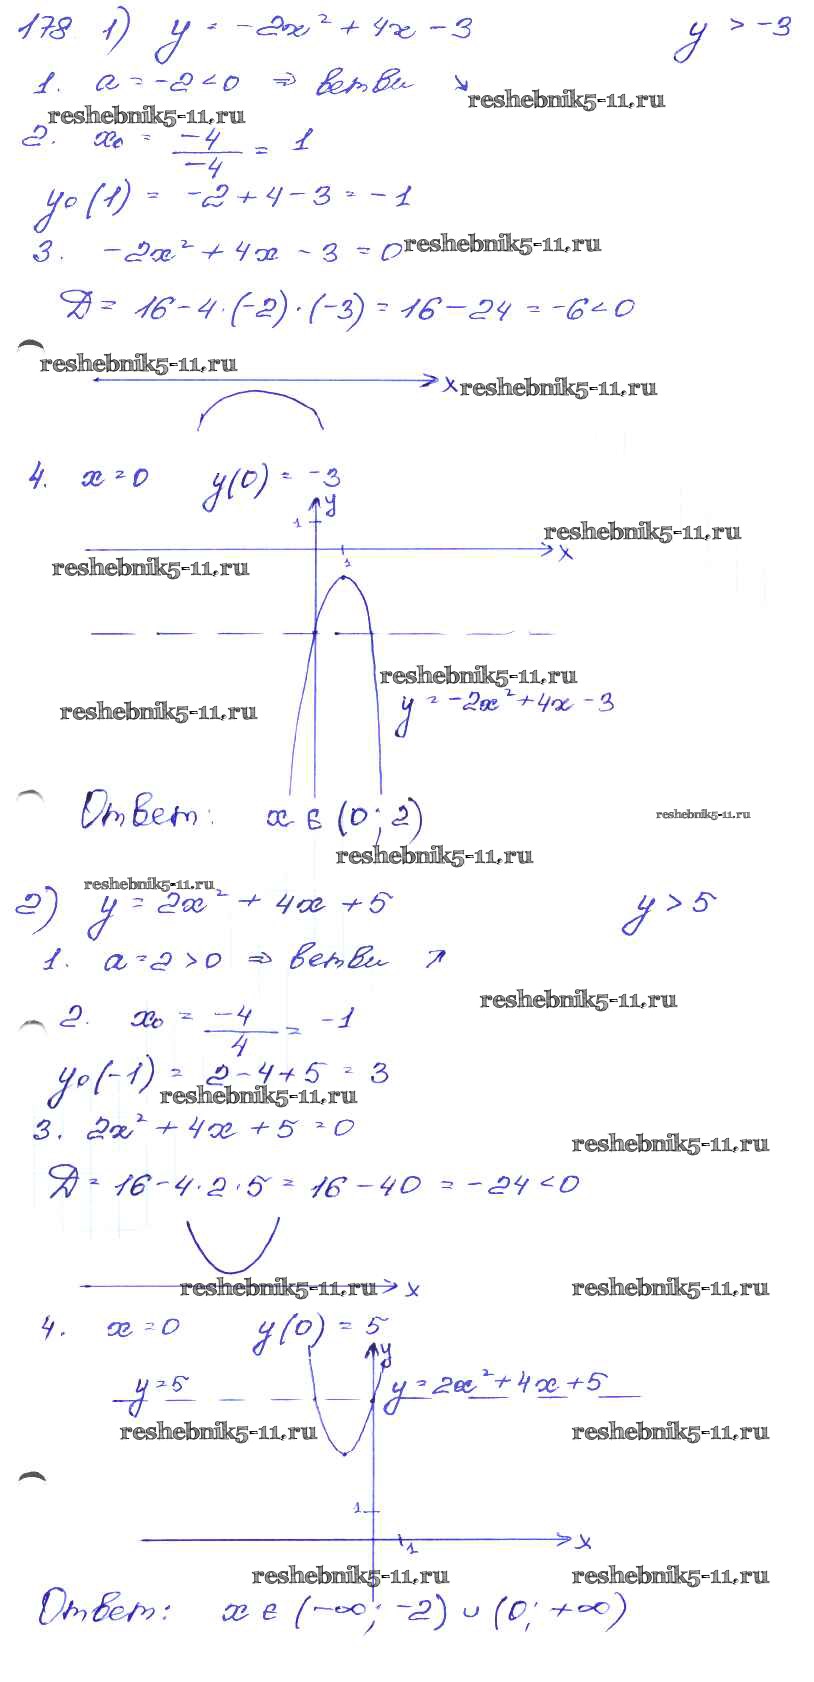 178 1) y = -2x² + 4x - 3 y > -3
1. a = -2 < 0 ⇒ ветви ↘
reshebnik5-11.ru
reshebnik5-11.ru
2. x₀ = -4/-4 = 1
y₀(1) = -2 + 4 - 3 = -1
3. -2x² + 4x - 3 = 0
reshebnik5-11.ru
D = 16 - 4·(-2)·(-3) = 16 - 24 = -6 < 0
reshebnik5-11.ru
x
reshebnik5-11.ru
4. x = 0 y(0) = -3
y
1
reshebnik5-11.ru
x
1
reshebnik5-11.ru
reshebnik5-11.ru
y = -2x² + 4x - 3
reshebnik5-11.ru
Ответ: x ∈ (0; 2)
reshebnik5-11.ru
reshebnik5-11.ru
reshebnik5-11.ru
2) y = 2x² + 4x + 5 y > 5
1. a = 2 > 0 ⇒ ветви ↗
reshebnik5-11.ru
2. x₀ = -4/4 = -1
y₀(-1) = 2 - 4 + 5 = 3
reshebnik5-11.ru
3. 2x² + 4x + 5 = 0
reshebnik5-11.ru
D = 16 - 4·2·5 = 16 - 40 = -24 < 0
reshebnik5-11.ru
x
reshebnik5-11.ru
4. x = 0 y(0) = 5
y
y = 5
y = 2x² + 4x + 5
reshebnik5-11.ru
reshebnik5-11.ru
1
x
1
reshebnik5-11.ru
reshebnik5-11.ru
Ответ: x ∈ (-∞; -2) ∪ (0; +∞)